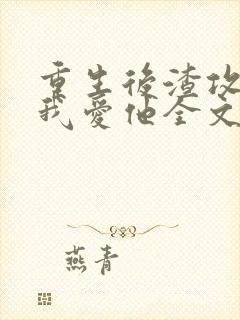 重生後渣攻
我愛他全文
燕青